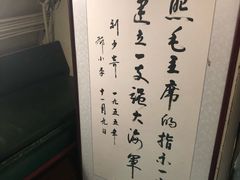 照毛主席的指示
建立一支强大海軍
刘少奇 一九五五年
邓小平 十一月九日